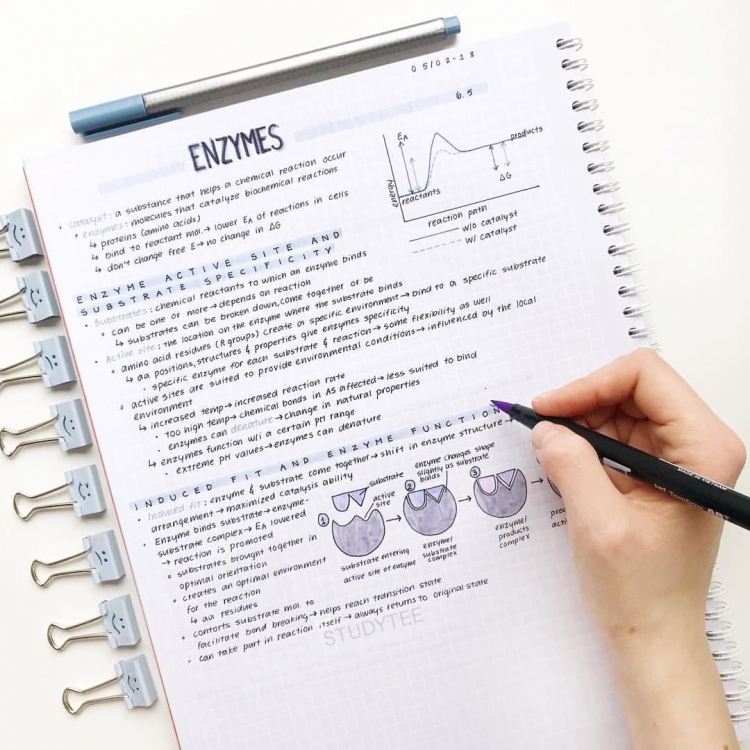 05/02-18
6.5
ENZYMES
• catalyst: a substance that helps a chemical reaction occur
• enzymes: molecules that catalyze biochemical reactions
↳ proteins (amino acids)
↳ bind to reactant mol. → lower EA of reactions in cells
↳ don't change free E → no change in ΔG
EA
products
energy
ΔG
reactants
reaction path
w/o catalyst
w/ catalyst
ENZYME ACTIVE SITE AND
SUBSTRATE SPECIFICITY
• Substrates: chemical reactants to which an enzyme binds
• can be one or more → depends on reaction
↳ substrates can be broken down, come together or be
• Active site: the location on the enzyme where the substrate binds
• amino acid residues (R groups) create a specific environment → bind to a specific substrate
↳ aa positions, structures & properties give enzymes specificity
• specific enzyme for each substrate & reaction → some flexibility as well
• active sites are suited to provide environmental conditions → influenced by the local
environment
↳ increased temp → increased reaction rate
• too high temp → chemical bonds in AS affected → less suited to bind
• enzymes can denature → change in natural properties
↳ enzymes function w/i a certain pH range
• extreme pH values → enzymes can denature
INDUCED FIT AND ENZYME FUNCTION
• Induced fit: enzyme & substrate come together → shift in enzyme structure →
arrangement → maximized catalysis ability
• Enzyme binds substrate → enzyme-
substrate complex → EA lowered
→ reaction is promoted
• substrates brought together in
optimal orientation
• creates an optimal environment
for the reaction
↳ aa residues
• contorts substrate mol. to
facilitate bond breaking → helps reach transition state
• can take part in reaction itself → always returns to original state
1
substrate
active
site
substrate entering
active site of enzyme
2
enzyme changes shape
slightly as substrate
binds
enzyme/
substrate
complex
3
enzyme/
products
complex
STUDYTEE